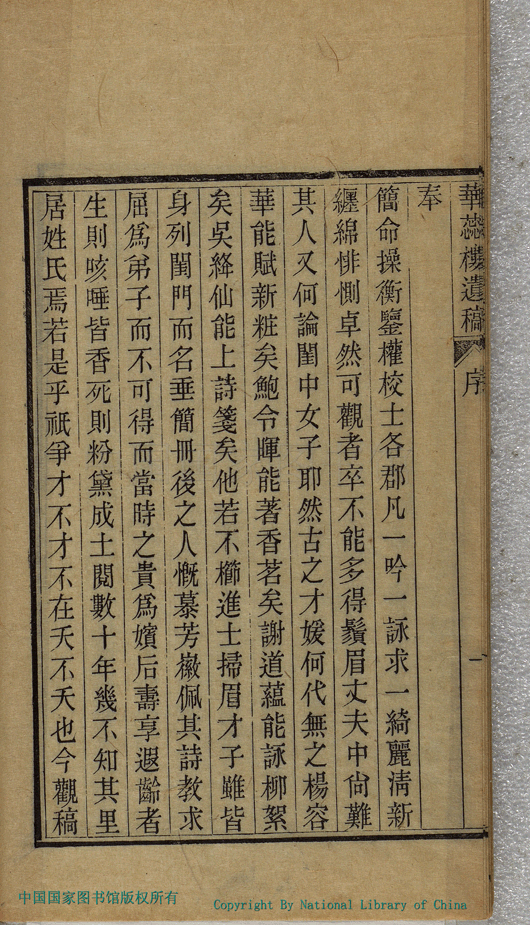 華蕊樓遺稿 序 一
奉
簡命操衡鑒權校士各郡凡一吟一詠求一綺麗清新
纏綿悱惻卓然可觀者卒不能多得鬚眉丈夫中尙難
其人又何論閨中女子耶然古之才媛何代無之楊容
華能賦新粧矣鮑令暉能著香茗矣謝道蘊能詠柳絮
矣吳絳仙能上詩箋矣他若不櫛進士掃眉才子雖皆
身列閨門而名垂簡冊後之人慨慕芳徽佩其詩教求
屈爲弟子而不可得而當時之貴爲嬪后壽享遐齡者
生則咳唾皆香死則粉黛成土閱數十年幾不知其里
居姓氏焉若是乎祇爭才不才不在夭不夭也今觀稿
中国国家图书馆版权所有
Copyright By National Library of China